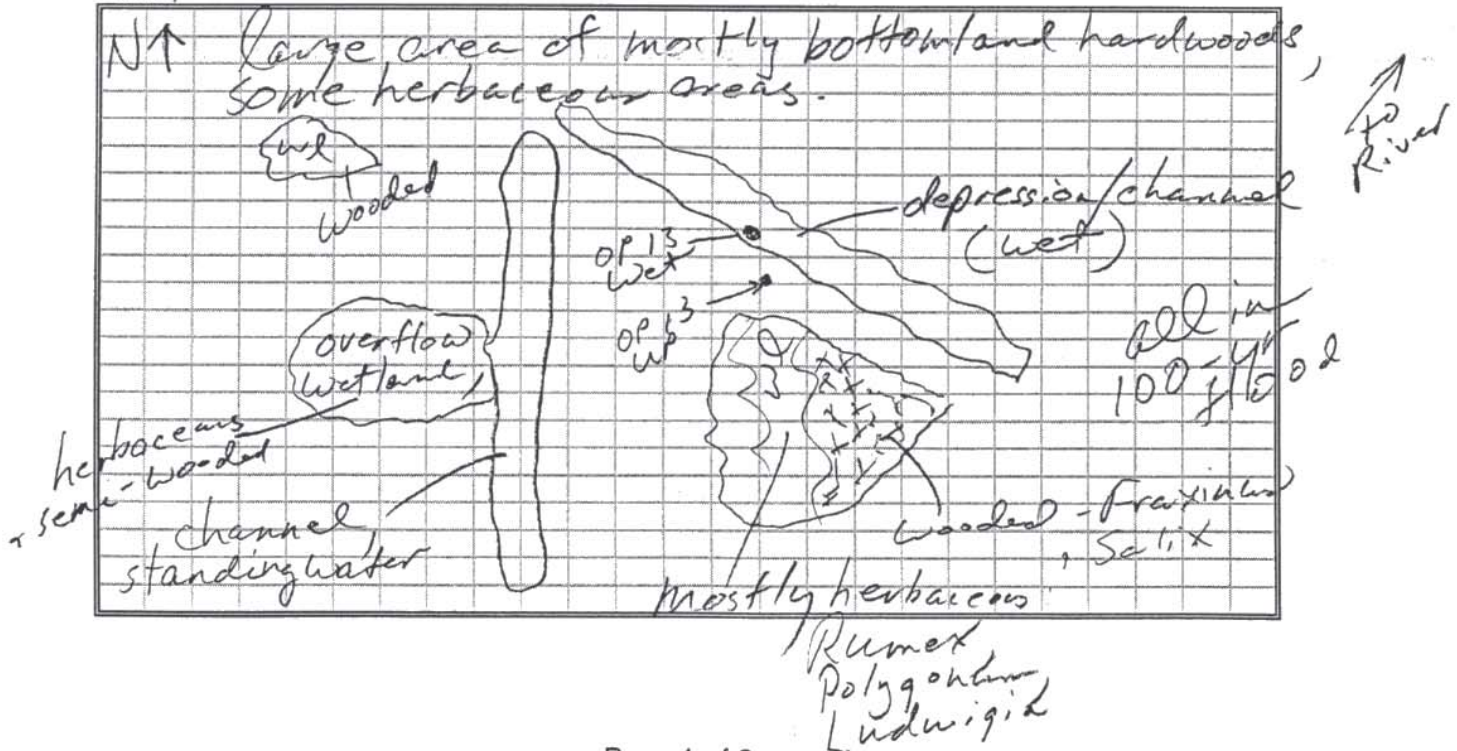 N↑ large area of mostly bottomland hardwoods,
some herbaceous areas.
to
River
wl
wooded
depression/channel
(wet)
OP 13
wet
OP 13
up
all in
100-yr
flood
overflow
wetland
herbaceous
semi-wooded
channel,
standing water
wooded - Fraxinus
, Salix
mostly herbaceous
Rumex
Polygonum
Ludwigia